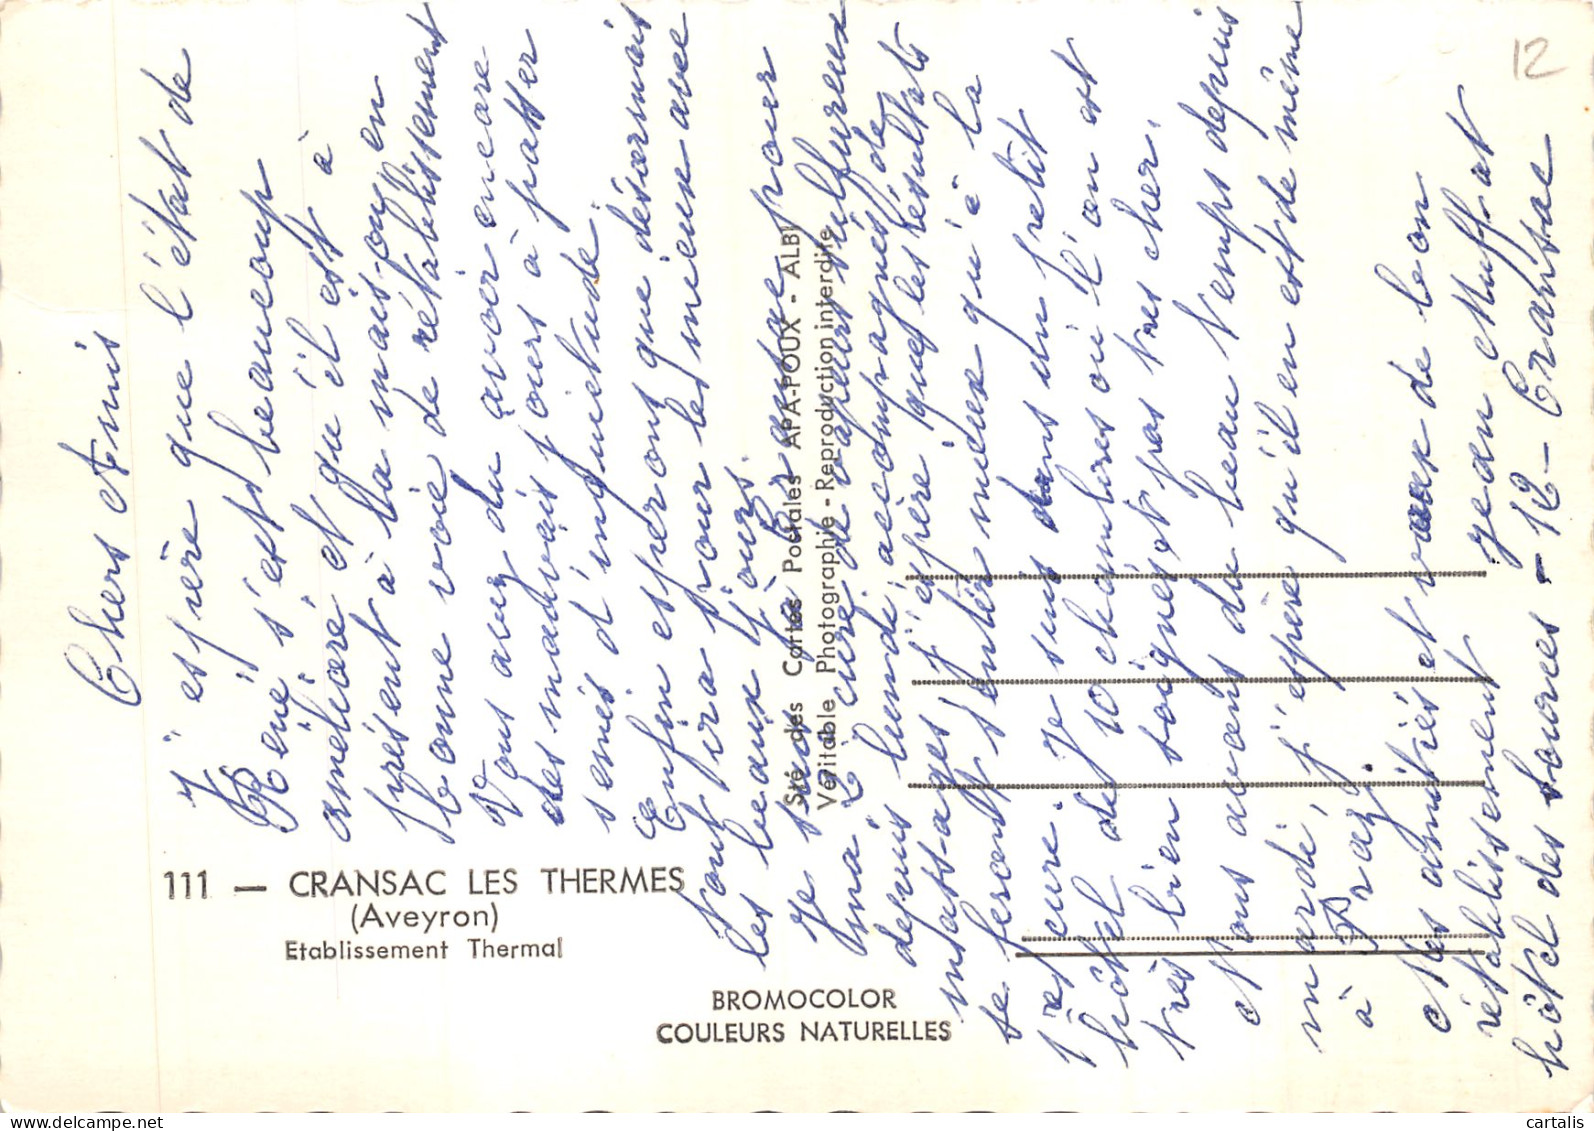 Chers Amis
J'espère que l'état de
René s'est beaucoup
amélioré et qu'il est à
présent à la maison en
bonne voie de rétablissement
Vous avez du avoir encore
des mauvais jours à passer
semés d'inquiétude.
Enfin esperons que désormais
tout ira pour les mieux avec
les beaux jours.
Je suis à pour
ma cure de vapeurs sulfureux
depuis lundi, accompagnés de
massages j'espère que les résultats
se feront sentir mieux qu'à la
1ère cure. Je suis dans un petit
hôtel de 10 chambres où l'on est
très bien soigné et pas très cher.
Nous avons du beau temps depuis
mardi, j'espère qu'il en est de même
à
Mes amitiés et vœux de bon
rétablissement
hôtel des Sources - 12 - Cransac
111 — CRANSAC LES THERMES
(Aveyron)
Etablissement Thermal
BROMOCOLOR
COULEURS NATURELLES
Sté des Cartes Postales APA-POUX - ALBI
Véritable Photographie - Reproduction interdite
12
cartalis